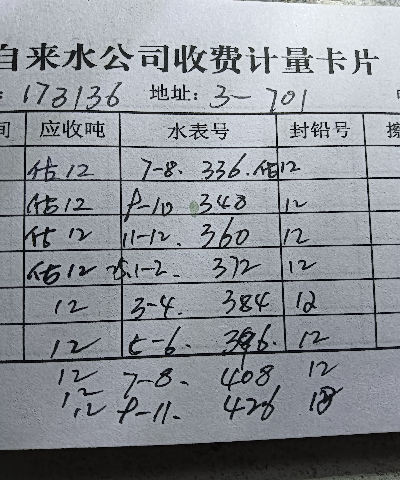 自来水公司收费计量卡片
: 173136 地址: 3-701
间 应收吨 水表号 封铅号
估12 7-8. 336. 估12
估12 9-10 348 12
估12 11-12. 360 12
估12 25.1-2. 372 12
12 3-4. 384 12
12 5-6. 396. 12
12 7-8. 408 12
12
12 9-11. 426 18